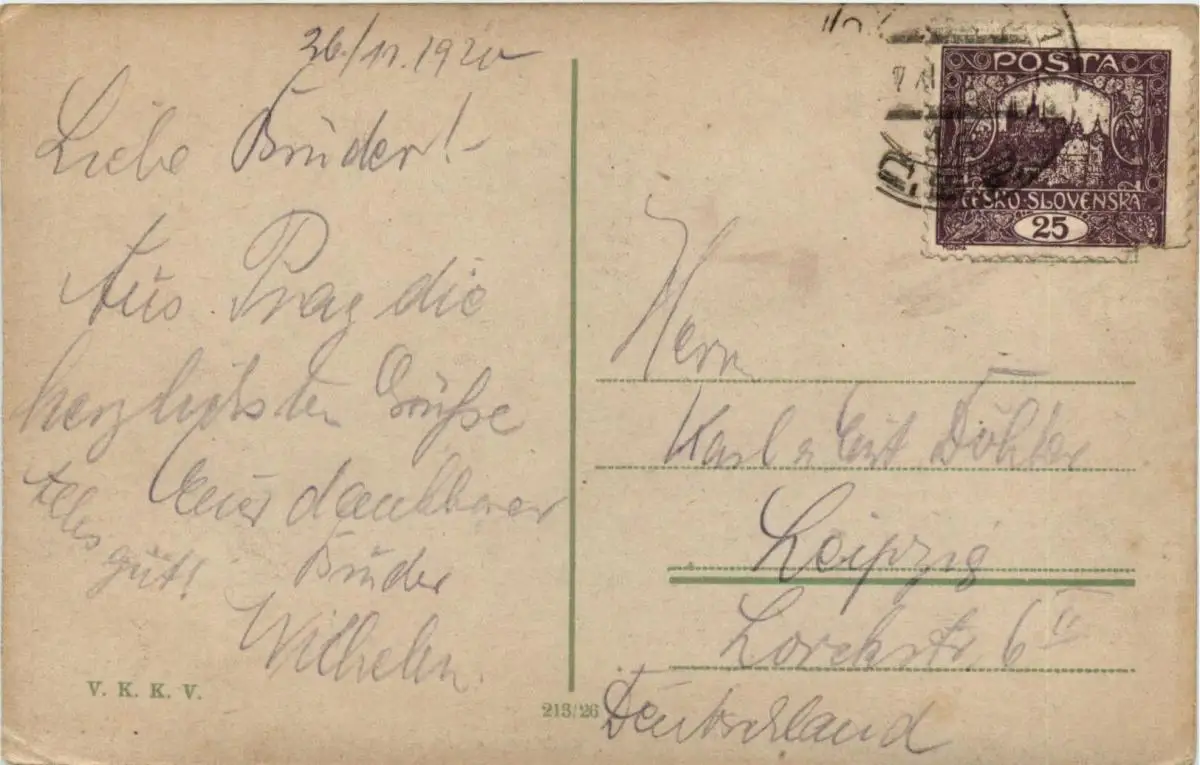 26/11.1920
Liebe Brüder!-
Aus Prag die
herzlichsten Grüße
Euer dankbarer
Bruder
Wilhelm.
Alles
gut!
V. K. K. V.
213/26
POSTA
ČESKO-SLOVENSKA
25
Herrn
Karl u
Leipzig
Lorckstr. 6 II
Deutschland